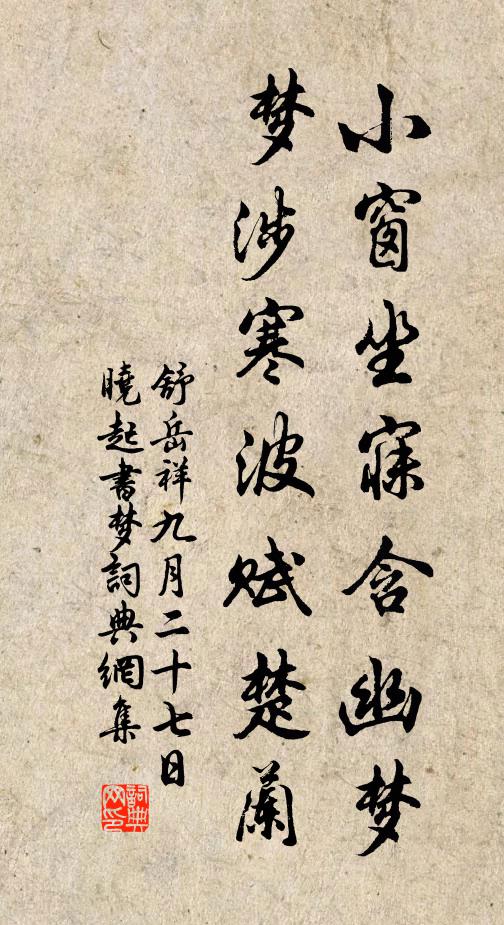 小窗坐寐含幽梦
梦涉寒波赋楚兰
舒岳祥九月二十七日
曉起書梦詞典網集
詞典
网印